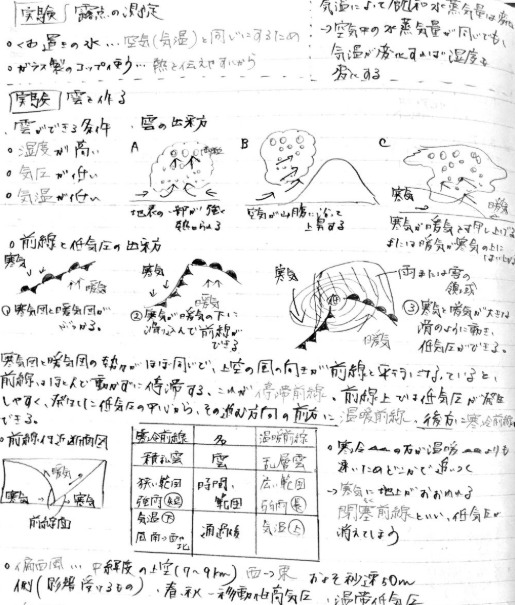 実験 露点の測定
○くみ置きの水…空気(気温)と同じにするため
○ガラス製のコップ使う…熱を伝えやすいから
気温によって飽和水蒸気量は
→空気中の水蒸気量が同じでも、
気温が変化すれば湿度も
変化する
実験 雲を作る
雲ができる条件
○湿度が高い
○気圧が低い
○気温が低い
雲の出来方
A
地表の一部が強く
熱せられる
B
空気が山腹に沿って
上昇する
C
寒気
暖気
寒気が暖気を押し上げる
または暖気が寒気の上に
○前線と低気圧の出来方
寒気
暖気
①寒気団と暖気団が
ぶつかる。
寒気
暖気
②寒気が暖気の下に
滑り込んで前線が
できる
寒気
暖気
雨または雪の
領域
③寒気と暖気が大きな
渦のように動き、
低気圧ができる。
寒気団と暖気団の勢力がほぼ同じで、上空の風の向きが前線と平行になっていると、
前線はほとんど動かずに停滞する。これが停滞前線。前線上では低気圧が発生
しやすく、発生した低気圧の中心から、その進む方向の前方に温暖前線、後方に寒冷前線が
できる。
○前線付近断面図
暖気
寒気
寒気
前線面
寒冷前線 名 温暖前線
積乱雲 雲 乱層雲
狭い範囲 時間、 広い範囲
強雨 短 範囲 弱雨 長
気温 下 通過後 気温 上
風南→西や北
○寒冷の方が温暖よりも
速いためどこかで追いつく
→寒気に地上がおおわれる
閉塞前線といい、低気圧が
消えてしまう
○偏西風…中緯度の上空(7〜9km) 西→東 およそ秒速50m
例(影響受けるもの) 春、秋−移動性高気圧、温帯低気圧